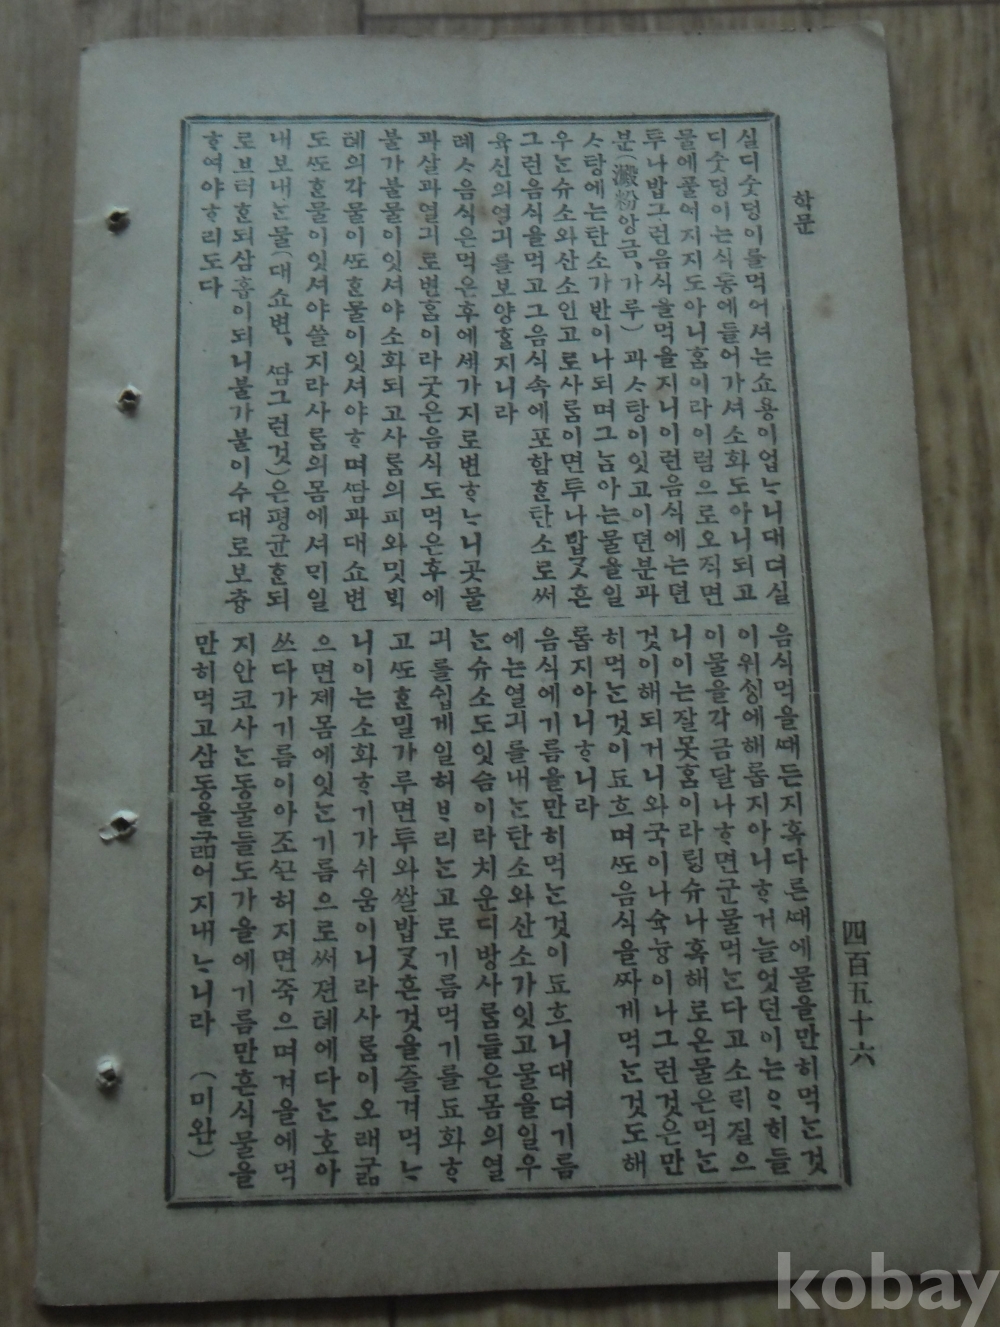 학문
四百五十六
실디슛덩이를먹어셔는쇼용이업ᄂᆞ니대뎌실
디슛덩이는식통에들어가셔소화도아니되고
물에풀어지지도아니홈이라이럼으로오직면
투나밥그런음식을먹을지니이런음식에는뎐
분(澱粉앙금、가루)과ᄉᆞ탕이잇고이뎐분과
ᄉᆞ탕에는탄소가반이나되며그놈아는물을일
우ᄂᆞᆫ슈소와산소인고로사ᄅᆞᆷ이면투나밥ᄀᆞᆺ흔
그런음식을먹고그음식속에포함ᄒᆞᆫ탄소로써
육신의열긔를보양ᄒᆞᆯ지니라
례ᄉᆞ음식은먹은후에세가지로변ᄒᆞᄂᆞ니곳물
과살과열긔로변홈이라굿은음식도먹은후에
불가불물이잇셔야소화되고사ᄅᆞᆷ의피와밋ᄇᆡᆨ
톄의각물이ᄯᅩᄒᆞᆫ물이잇셔야ᄒᆞ며ᄯᅡᆷ과대쇼변
도ᄯᅩᄒᆞᆫ물이잇셔야쓸지라사ᄅᆞᆷ의몸에셔ᄆᆡ일
내보내ᄂᆞᆫ물(대쇼변、ᄯᅡᆷ그런것)은평균ᄒᆞᆫ되
로브터ᄒᆞᆫ되삼홉이되니불가불이수대로보츙
ᄒᆞ여야ᄒᆞ리도다
음식먹을ᄯᅢ든지혹다른ᄯᅢ에물을만히먹ᄂᆞᆫ것
이위ᄉᆡᆼ에해롭지아니ᄒᆞ거늘엇던이는ᄋᆞᄒᆡ들
이물을각금달나ᄒᆞ면군물먹ᄂᆞᆫ다고소ᄅᆡ질으
니이는잘못홈이라ᄅᆡᆼ슈나혹해로온물은먹ᄂᆞᆫ
것이해되거니와국이나슉늉이나그런것은만
히먹ᄂᆞᆫ것이됴흐며ᄯᅩ음식을짜게먹ᄂᆞᆫ것도해
롭지아니ᄒᆞ니라
음식에기름을만히먹ᄂᆞᆫ것이됴흐니대뎌기름
에는열긔를내ᄂᆞᆫ탄소와산소가잇고물을일우
ᄂᆞᆫ슈소도잇슴이라치운디방사ᄅᆞᆷ들은몸의열
긔를쉽게일허ᄇᆞ리ᄂᆞᆫ고로기름먹기를됴화ᄒᆞ
고ᄯᅩᄒᆞᆫ밀가루면투와쌀밥ᄀᆞᆺ흔것을즐겨먹ᄂᆞ
니이는소화ᄒᆞ기가쉬움이니라사ᄅᆞᆷ이오래굶
으면제몸에잇ᄂᆞᆫ기름으로써젼톄에다ᄂᆞᆫ호아
쓰다가기름이아조ᄉᆞᆫ허지면죽으며겨을에먹
지안코사ᄂᆞᆫ동물들도가을에기름만흔식물을
만히먹고삼동을굶어지내ᄂᆞ니라 (미완)
kobay